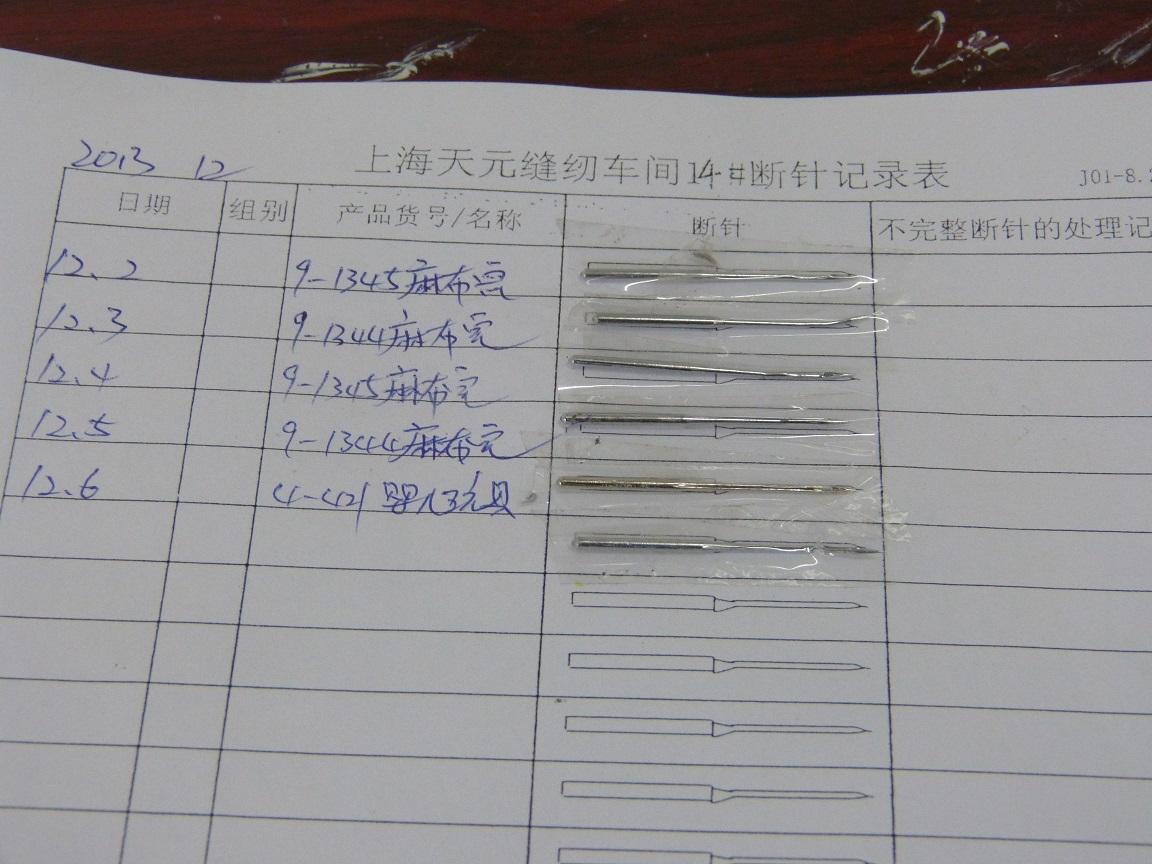 2013 12
上海天元缝纫车间14#断针记录表
J01-8.
日期 组别 产品货号/名称 断针 不完整断针的处理记
12.2 9-1345麻布
12.3 9-1344麻布
12.4 9-1345麻布
12.5 9-1344麻布
12.6 4-421 婴儿玩具